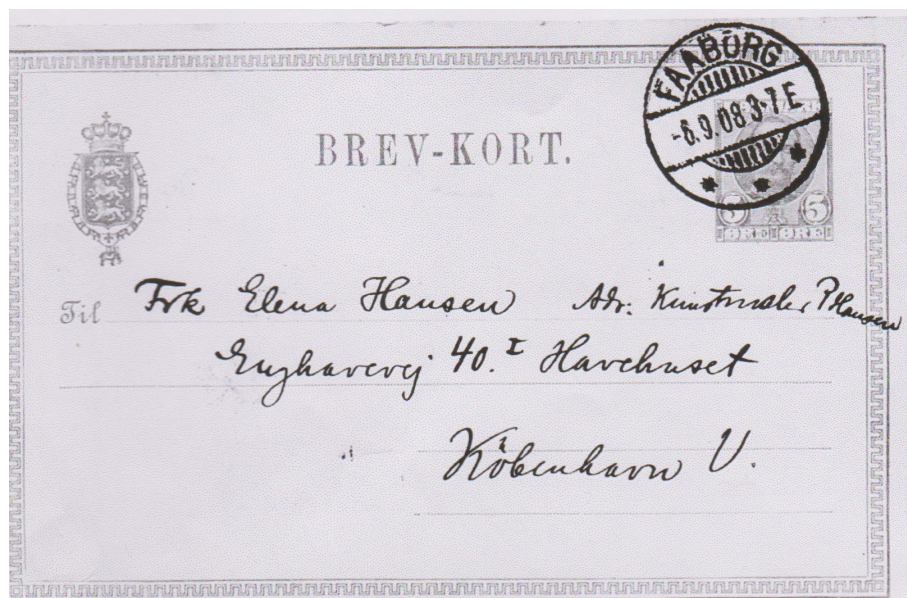 FAABORG
-6.9.08 3-7 E
BREV-KORT.
5 5
ØRE ØRE
Til Frk Elena Hansen Adr: Kunstmaler P Hansen
Enghavevej 40.I Havehuset
København V.